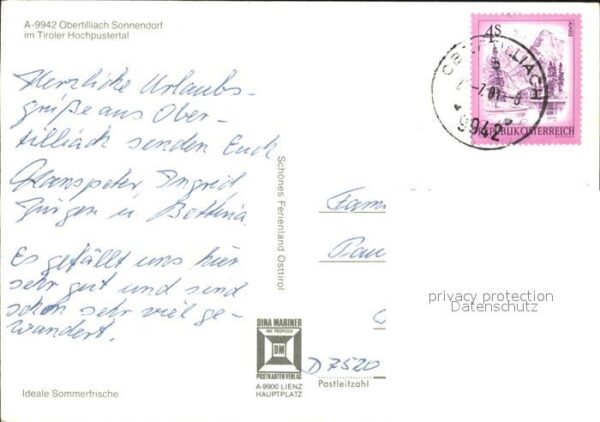 A-9942 Obertilliach Sonnendorf
im Tiroler Hochpustertal
Herzliche Urlaubs-
grüße aus Ober-
tilliach senden Euch
Hanspeter Ingrid
Jürgen u. Bettina
Es gefällt uns hier
sehr gut und sind
schon sehr viel ge-
wandert.
Ideale Sommerfrische
Schönes Ferienland Osttirol
DINA MARINER
DM
POSTKARTEN VERLAG
A-9900 LIENZ
HAUPTPLATZ
4S
REPUBLIK ÖSTERREICH
9942
Fam
D 7520
Postleitzahl
privacy protection
Datenschutz